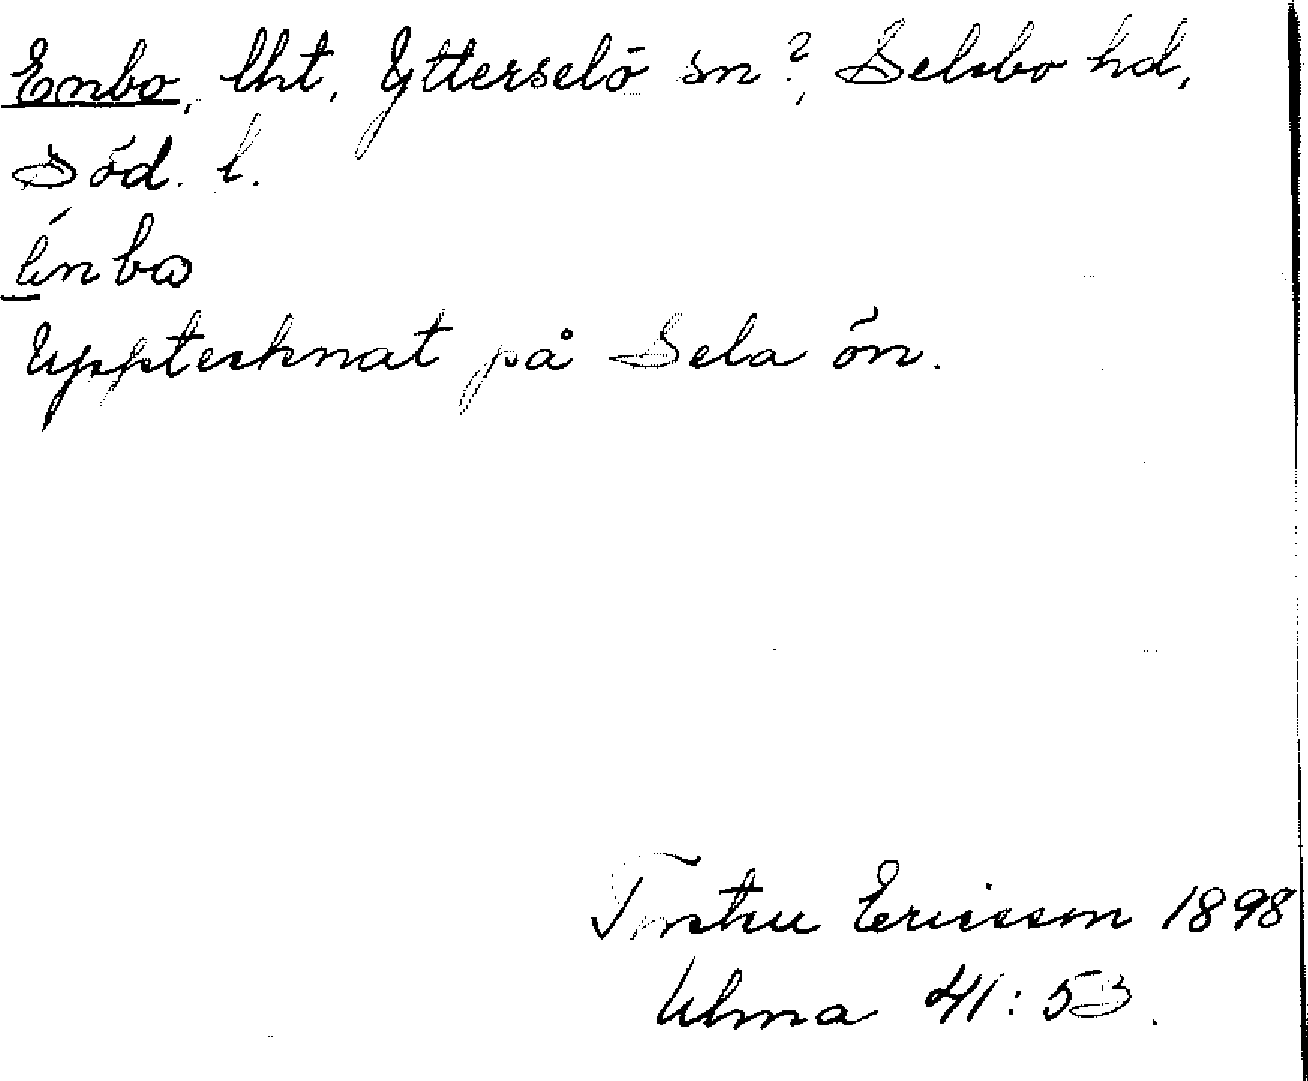 Enbo, lht, Ytterselö sn?, Selebo hd,
Söd. l.
énbω
Upptecknat på Sela ön.
Torsten Ericsson 1898
Ulma 41:53.